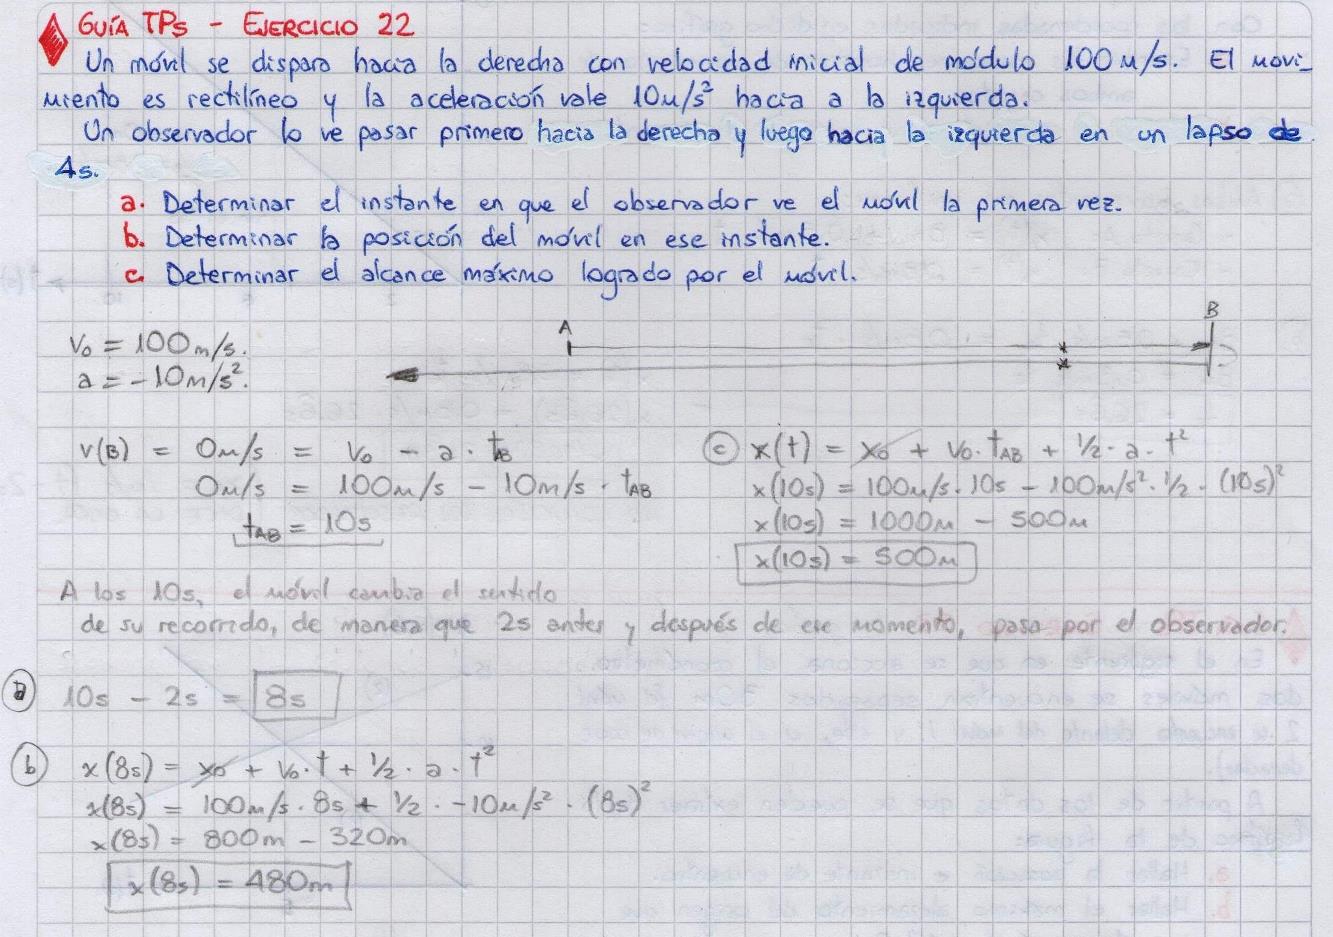 GUÍA TPs - EJERCICIO 22
Un móvil se dispara hacia la derecha con velocidad inicial de módulo 100 m/s. El movi-
miento es rectilíneo y la aceleración vale 10m/s² hacia a la izquierda.
Un observador lo ve pasar primero hacia la derecha y luego hacia la izquierda en un lapso de
4s.
a. Determinar el instante en que el observador ve el móvil la primera vez.
b. Determinar la posición del móvil en ese instante.
c. Determinar el alcance máximo logrado por el móvil.
A B
V₀ = 100m/s.
a = -10m/s².
v(B) = 0m/s = V₀ - a · tB
0m/s = 100m/s - 10m/s · tAB
tAB = 10s
c x(t) = x₀ + V₀ · tAB + 1/2 · a · t²
x(10s) = 100m/s . 10s - 100m/s² · 1/2 · (10s)²
x(10s) = 1000m - 500m
x(10s) = 500m
A los 10s, el móvil cambia el sentido
de su recorrido, de manera que 2s antes y después de ese momento, pasa por el observador.
a 10s - 2s = 8s
b x(8s) = x₀ + V₀ · t + 1/2 · a · t²
x(8s) = 100m/s · 8s + 1/2 · -10m/s² · (8s)²
x(8s) = 800m - 320m
x(8s) = 480m